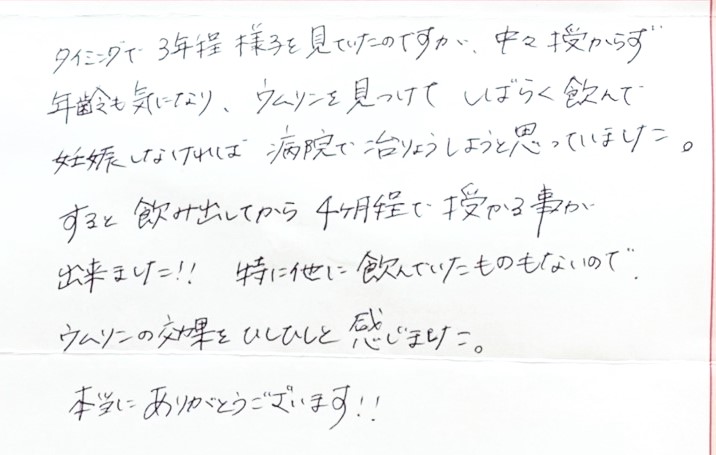 タイミングで3年程様子を見ていたのですが、中々授からず
年齢も気になり、ウムリンを見つけてしばらく飲んで
妊娠しなければ病院で治りょうしようと思っていました。
すると飲み出してから4ヶ月程で授かる事が
出来ました!! 特に他に飲んでいたものもないので、
ウムリンの効果をひしひしと感じました。
本当にありがとうございます!!